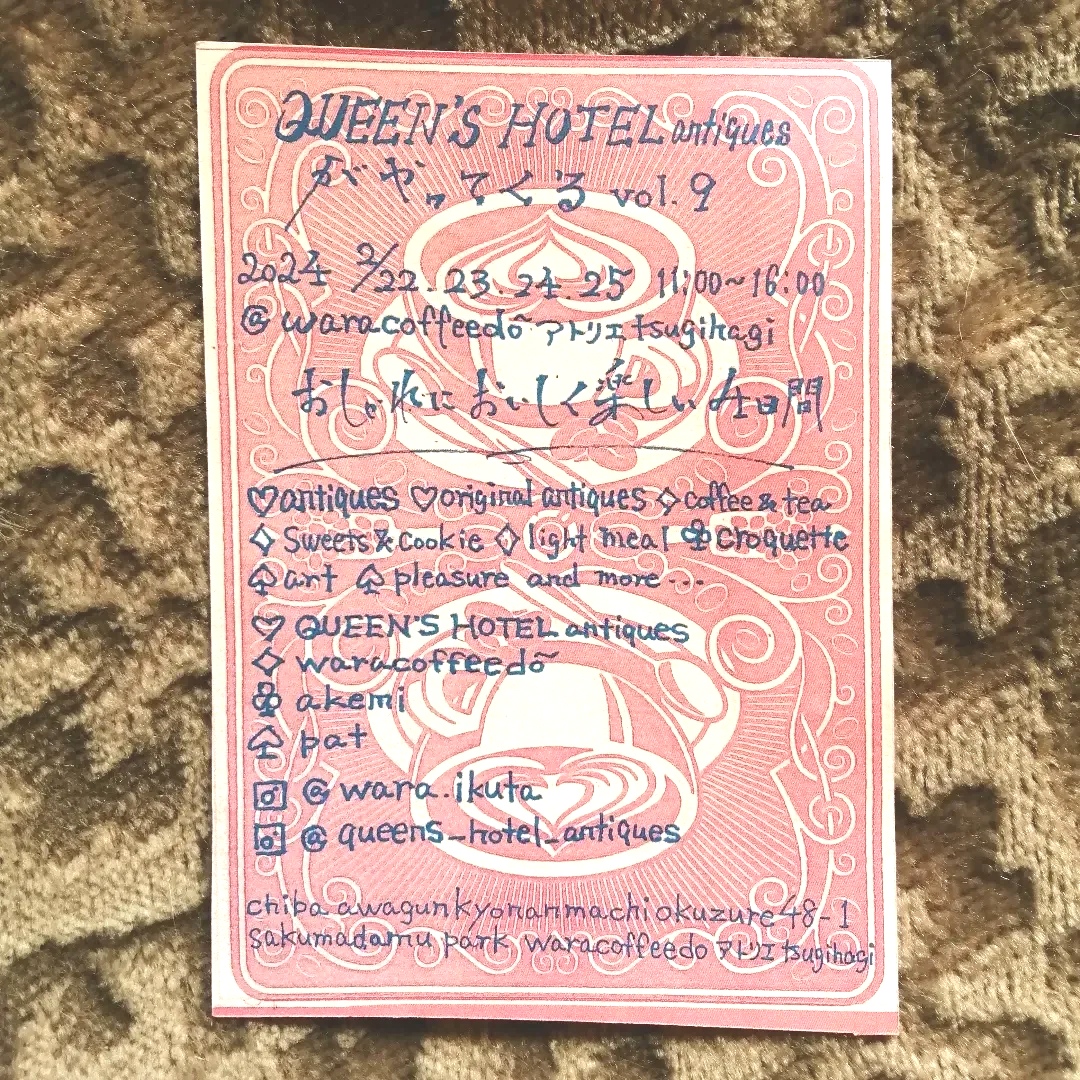 QUEEN'S HOTEL antiques
がやってくる vol.9
2024 2/22.23.24.25 11:00~16:00
@ waracoffeedõ アトリエ tsugihagi
おしゃれにおいしく楽しい4日間
♡antiques ♡original antiques ♢coffee & tea
♢ Sweets & cookie ♢ light meal ♧croquette
♤art ♤ pleasure and more ...
♡ QUEEN'S HOTEL antiques
♢ waracoffeedõ
♧ akemi
♤ pat
@ wara.ikuta
@ queens_hotel_antiques
chiba awagun kyonanmachi okuzure 48-1
sakumadamu park waracoffeedo アトリエ tsugihagi